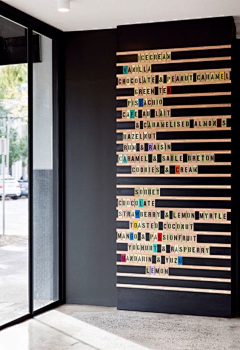 ICECREAM
VANILLA
CHOCOLATE & PEANUT CARAMEL
GREEN TEA
PISTACHIO
& CARAMELISED ALMONDS
HAZELNUT
RUM & RAISIN
CARAMEL & SABLE BRETON
COOKIES & CREAM
SORBET
CHOCOLATE
STRAWBERRY & LEMON MYRTLE
TOASTED COCONUT
MANGO & PASSIONFRUIT
YOGHURT & RASPBERRY
MANDARIN & YUZU
LEMON